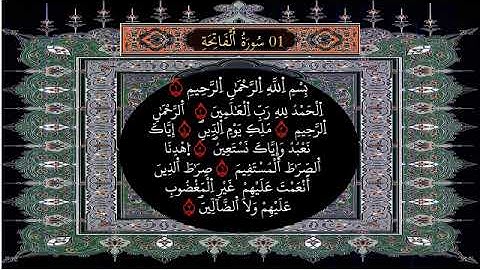 01 سُورَةُ ٱلْفَاتِحَة
بِسْمِ ٱللَّهِ ٱلرَّحْمَٰنِ ٱلرَّحِيمِ ١
ٱلْحَمْدُ لِلَّهِ رَبِّ ٱلْعَٰلَمِينَ ٢ ٱلرَّحْمَٰنِ
ٱلرَّحِيمِ ٣ مَٰلِكِ يَوْمِ ٱلدِّينِ ٤ إِيَّاكَ
نَعْبُدُ وَإِيَّاكَ نَسْتَعِينُ ٥ ٱهْدِنَا
ٱلصِّرَٰطَ ٱلْمُسْتَقِيمَ ٦ صِرَٰطَ ٱلَّذِينَ
أَنْعَمْتَ عَلَيْهِمْ غَيْرِ ٱلْمَغْضُوبِ
عَلَيْهِمْ وَلَا ٱلضَّآلِّينَ ٧